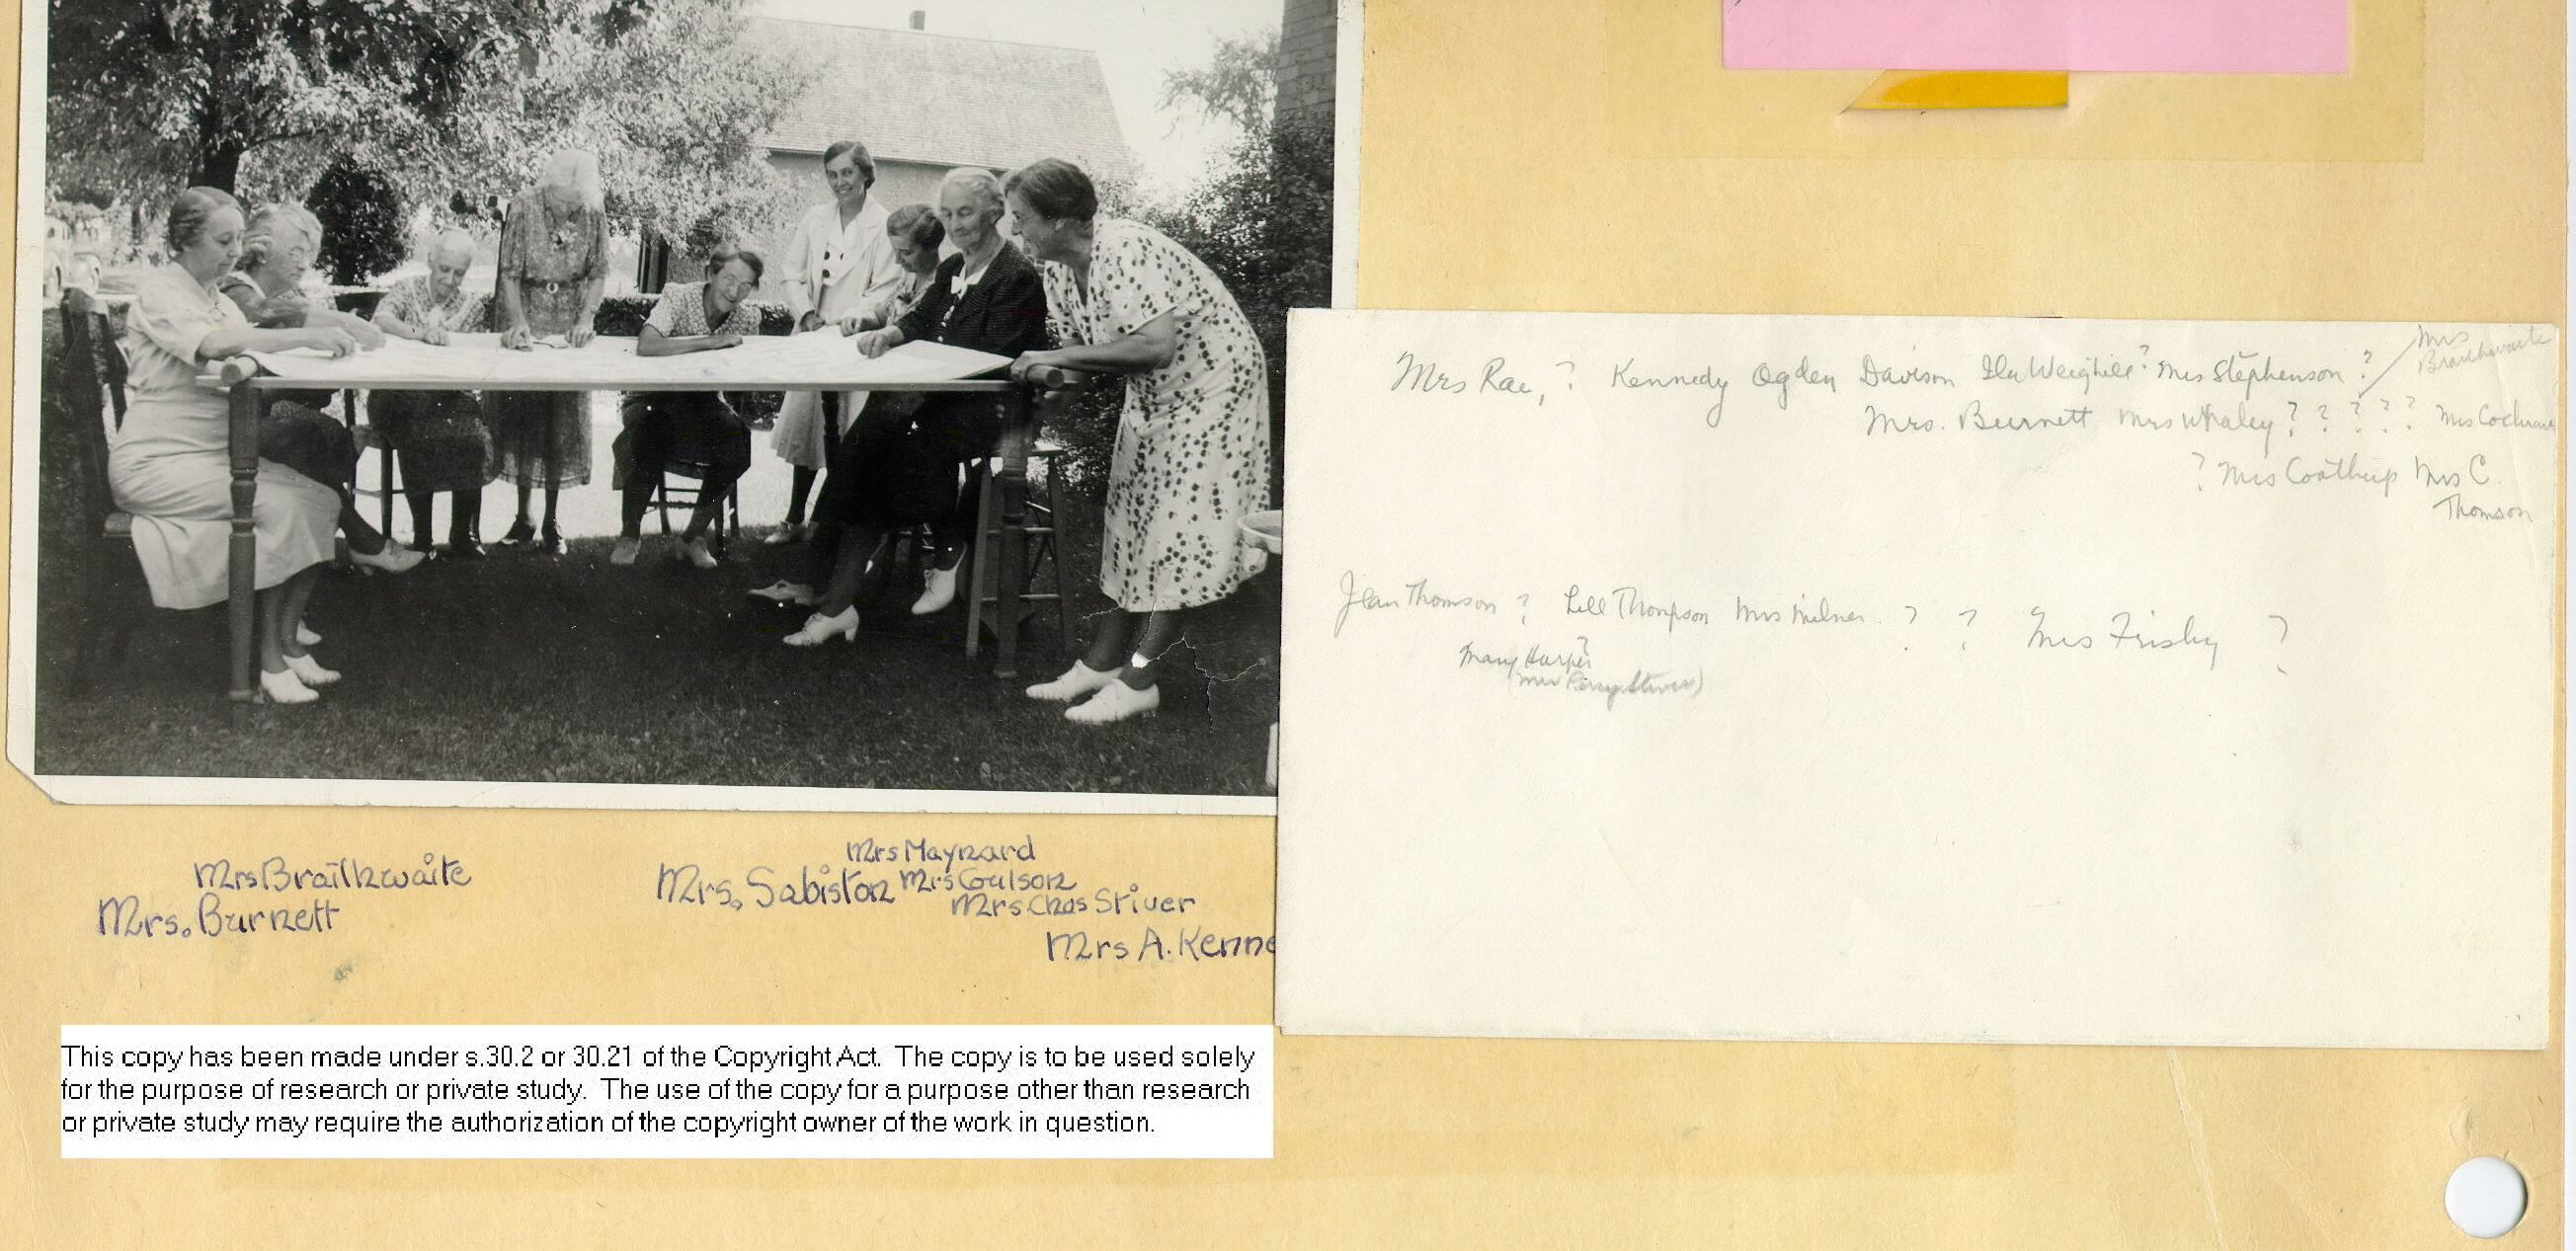 Mrs Rae, ? Kennedy Ogden Davison Ila Weighill? Mrs Stephenson ? / Mrs Braithwaite
Mrs. Burnett Mrs Whaley ? ? ? ? ? Mrs Cochrane
? Mrs Coathup Mrs C.
Thomson
Jean Thomson ? Lell Thompson Mrs Milner. ? ? Mrs Frisby ?
Mary Harper?
Mrs Maynard
Mrs Braithwaite
Mrs. Sabiston Mrs Coulson
Mrs Chas Stiver
Mrs. Burnett
Mrs A. Kenne
This copy has been made under s.30.2 or 30.21 of the Copyright Act. The copy is to be used solely
for the purpose of research or private study. The use of the copy for a purpose other than research
or private study may require the authorization of the copyright owner of the work in question.